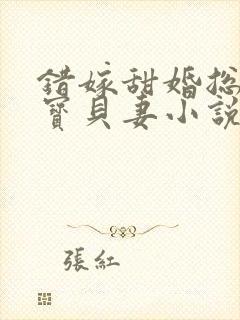 錯嫁甜婚總
寶貝妻小說
張紅